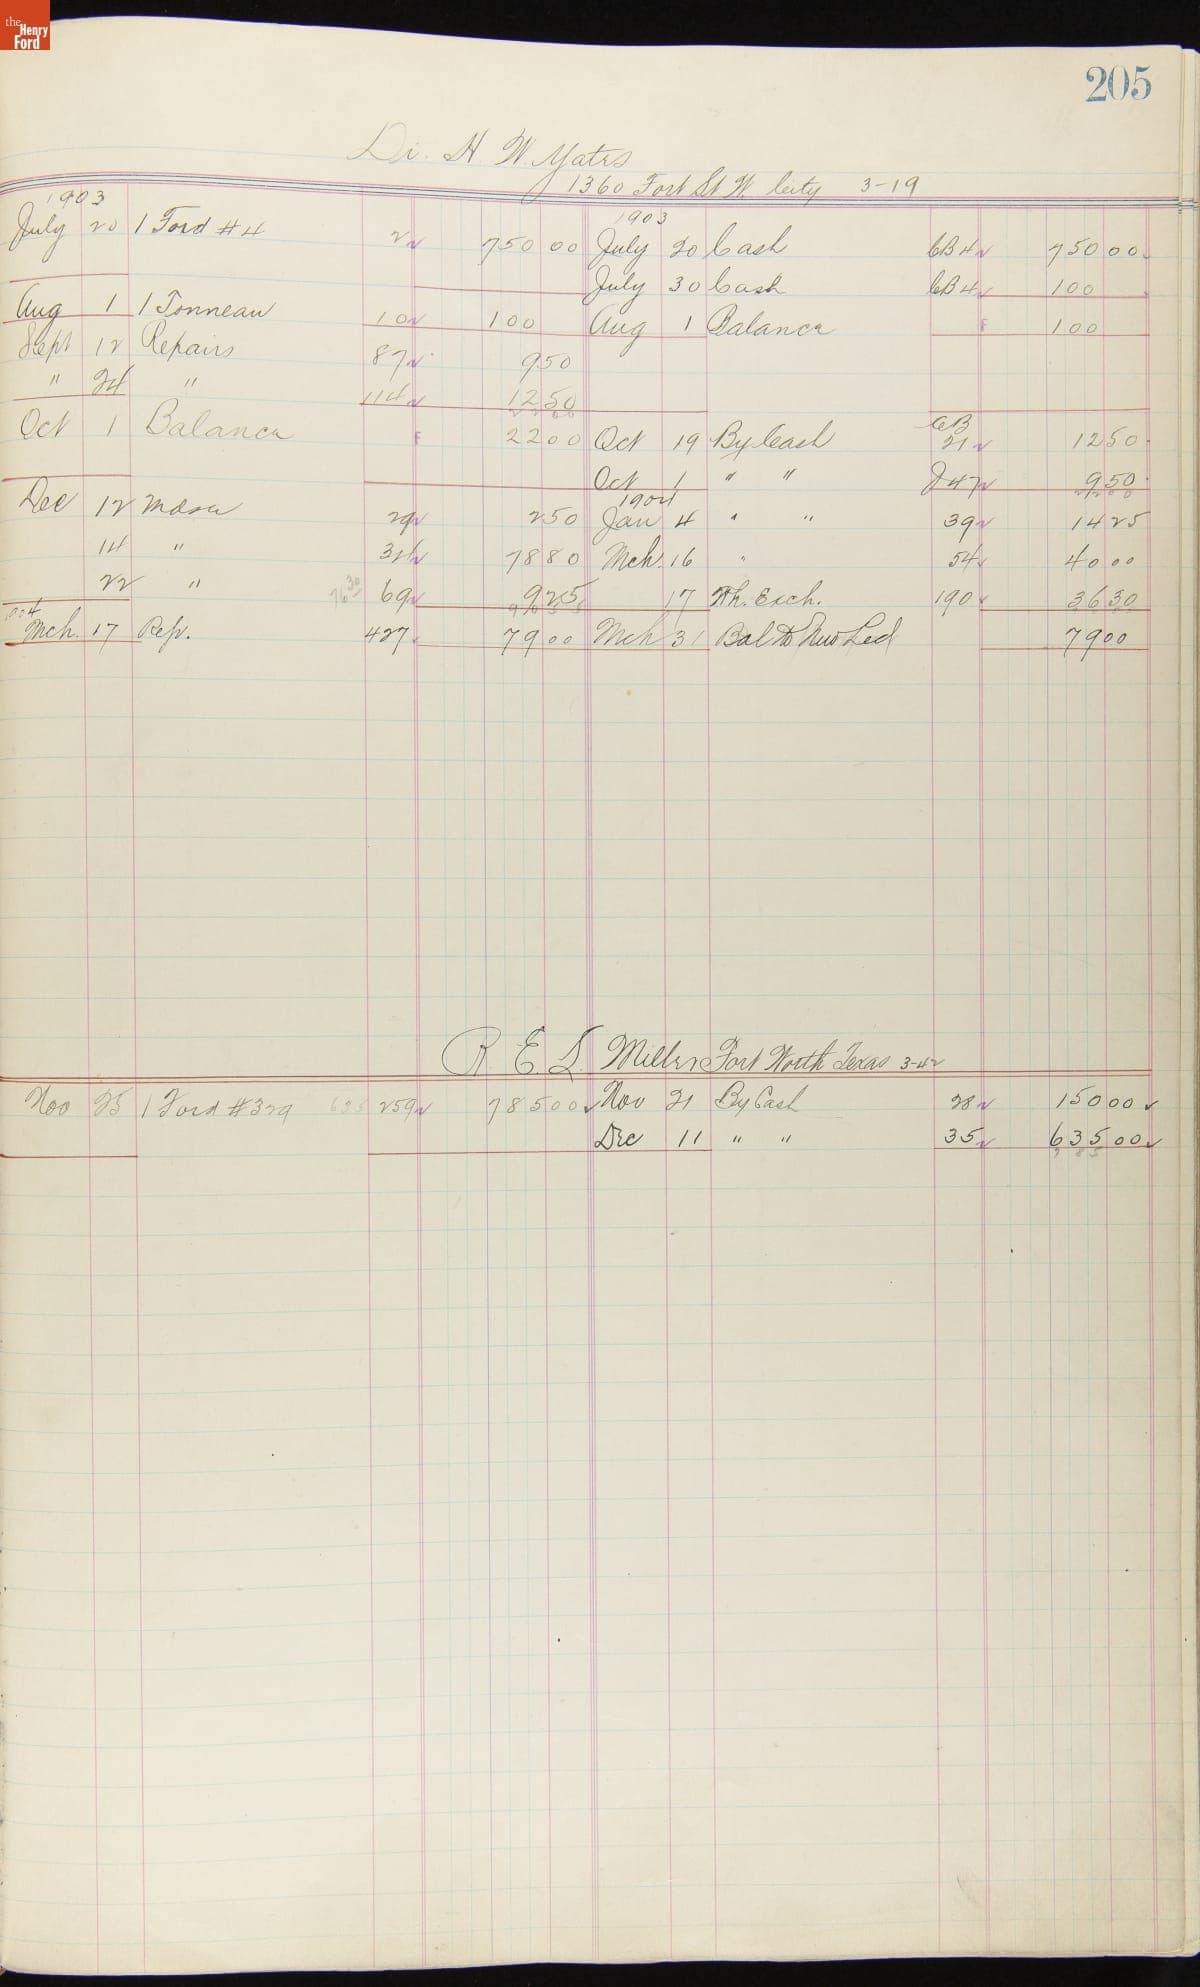 the Henry Ford
205
Dr. H. W. Yates
1360 Fort St W. City 3-19
1903 1903
July 20 1 Ford #4 2 750 00 July 20 Cash CB 4 750 00
July 30 Cash CB 4 100
Aug 1 1 Tonneau 10 100 Aug 1 Balance 100
Sept 12 Repairs 87 9 50
" 24 " 114 12 50
22 00
Oct 1 Balance 22 00 Oct 19 By Cash CB 21 12 50
Oct 1 " " J 47 9 50
22 00
1904
Dec 12 Mdse 29 2 50 Jan 4 " " 39 14 25
14 " 34 78 80 Mch. 16 " 54 40 00
22 " 76 30 69 9 25 17 Th. Exch. 190 36 30
90 55
1904
Mch. 17 Rep. 427 79 00 Mch 31 Bal to New Led 79 00
R. E. L. Miller Fort Worth Texas 3-42
Nov 25 1 Ford #329 635 259 785 00 Nov 21 By Cash 28 150 00
Dec 11 " " 35 635 00
785